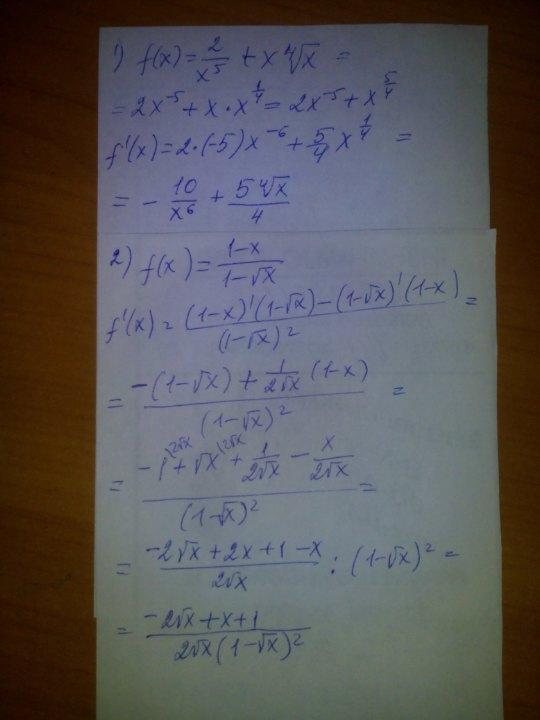 1) f(x) = 2/x⁵ + x ∜x =
= 2x⁻⁵ + x · x^(1/4) = 2x⁻⁵ + x^(5/4)
f'(x) = 2·(-5)x⁻⁶ + 5/4 x^(1/4) =
= - 10/x⁶ + 5∜x/4
2) f(x) = (1-x)/(1-√x)
f'(x) = ((1-x)'(1-√x) - (1-√x)'(1-x))/(1-√x)² =
= (-(1-√x) + 1/(2√x) (1-x))/(1-√x)² =
= (-1^(2√x) + √x^(2√x) + 1/(2√x) - x/(2√x))/(1-√x)² =
= (-2√x + 2x + 1 - x)/(2√x) : (1-√x)² =
= (-2√x + x + 1)/(2√x(1-√x)²)